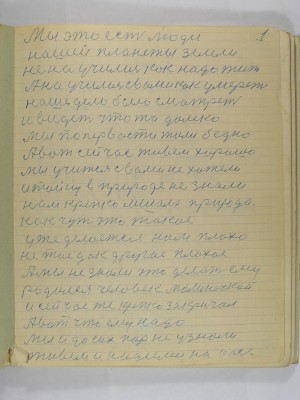 1
Мы это есть люди
нашей планеты земли
не научились как надо жить
А научились с вами как умереть
наше дело было смотреть
и видеть что то далеко
Мы по первости жили бедно
А вот сейчас живем хорошо
мы учится с вами не хотели
и толку в природе не знали
нам крепко мешала природа.
как чуть это такое
уже делается нам плохо
не то дак другое плохое
А мы не знали что делать ему
родился человек
и сейчас же крепко закричал
А вот что ему надо
мы и до сих пор не узнали
живем и надеемся на